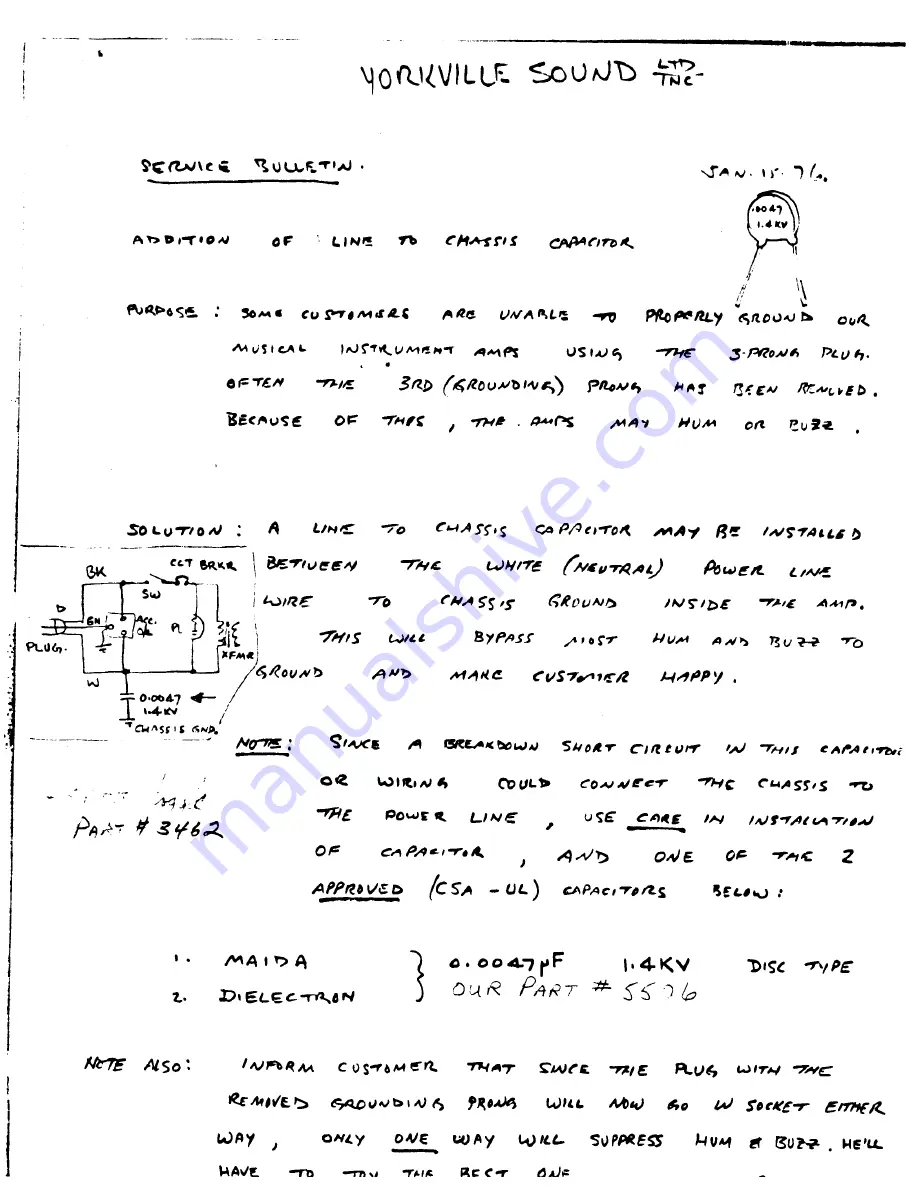 YORKVILLE SOUND LTD INC
SERVICE BULLETIN.
JAN. 15. 76.
.0047
1.4KV
ADDITION OF LINE TO CHASSIS CAPACITOR
PURPOSE : SOME CUSTOMERS ARE UNABLE TO PROPERLY GROUND OUR
MUSICAL INSTRUMENT AMPS USING THE 3-PRONG PLUG.
OFTEN THE 3RD (GROUNDING) PRONG HAS BEEN REMOVED.
BECAUSE OF THIS , THE AMPS MAY HUM OR BUZZ .
SOLUTION : A LINE TO CHASSIS CAPACITOR MAY BE INSTALLED
BETWEEN THE WHITE (NEUTRAL) POWER LINE
WIRE TO CHASSIS GROUND INSIDE THE AMP.
THIS WILL BYPASS MOST HUM AND BUZZ TO
GROUND AND MAKE CUSTOMER HAPPY .
BK
CCT BRKR
SW
GN
ACC.
PL
PLUG.
XFMR
W
0.0047
1.4KV
CHASSIS GND.
NOTE: SINCE A BREAKDOWN SHORT CIRCUIT IN THIS CAPACITOR
OR WIRING COULD CONNECT THE CHASSIS TO
THE POWER LINE , USE CARE IN INSTALLATION
OF CAPACITOR , AND ONE OF THE 2
APPROVED (CSA - UL) CAPACITORS BELOW :
PART # 3462
1. MAIDA
2. DIELECTRON
0.0047µF 1.4KV DISC TYPE
OUR PART #
NOTE ALSO : INFORM CUSTOMER THAT SINCE THE PLUG WITH THE
REMOVED GROUNDING PRONG WILL NOW GO IN SOCKET EITHER
WAY , ONLY ONE WAY WILL SUPPRESS HUM & BUZZ . HE'LL
HAVE TO TRY THE BEST ONE
manualshive.com